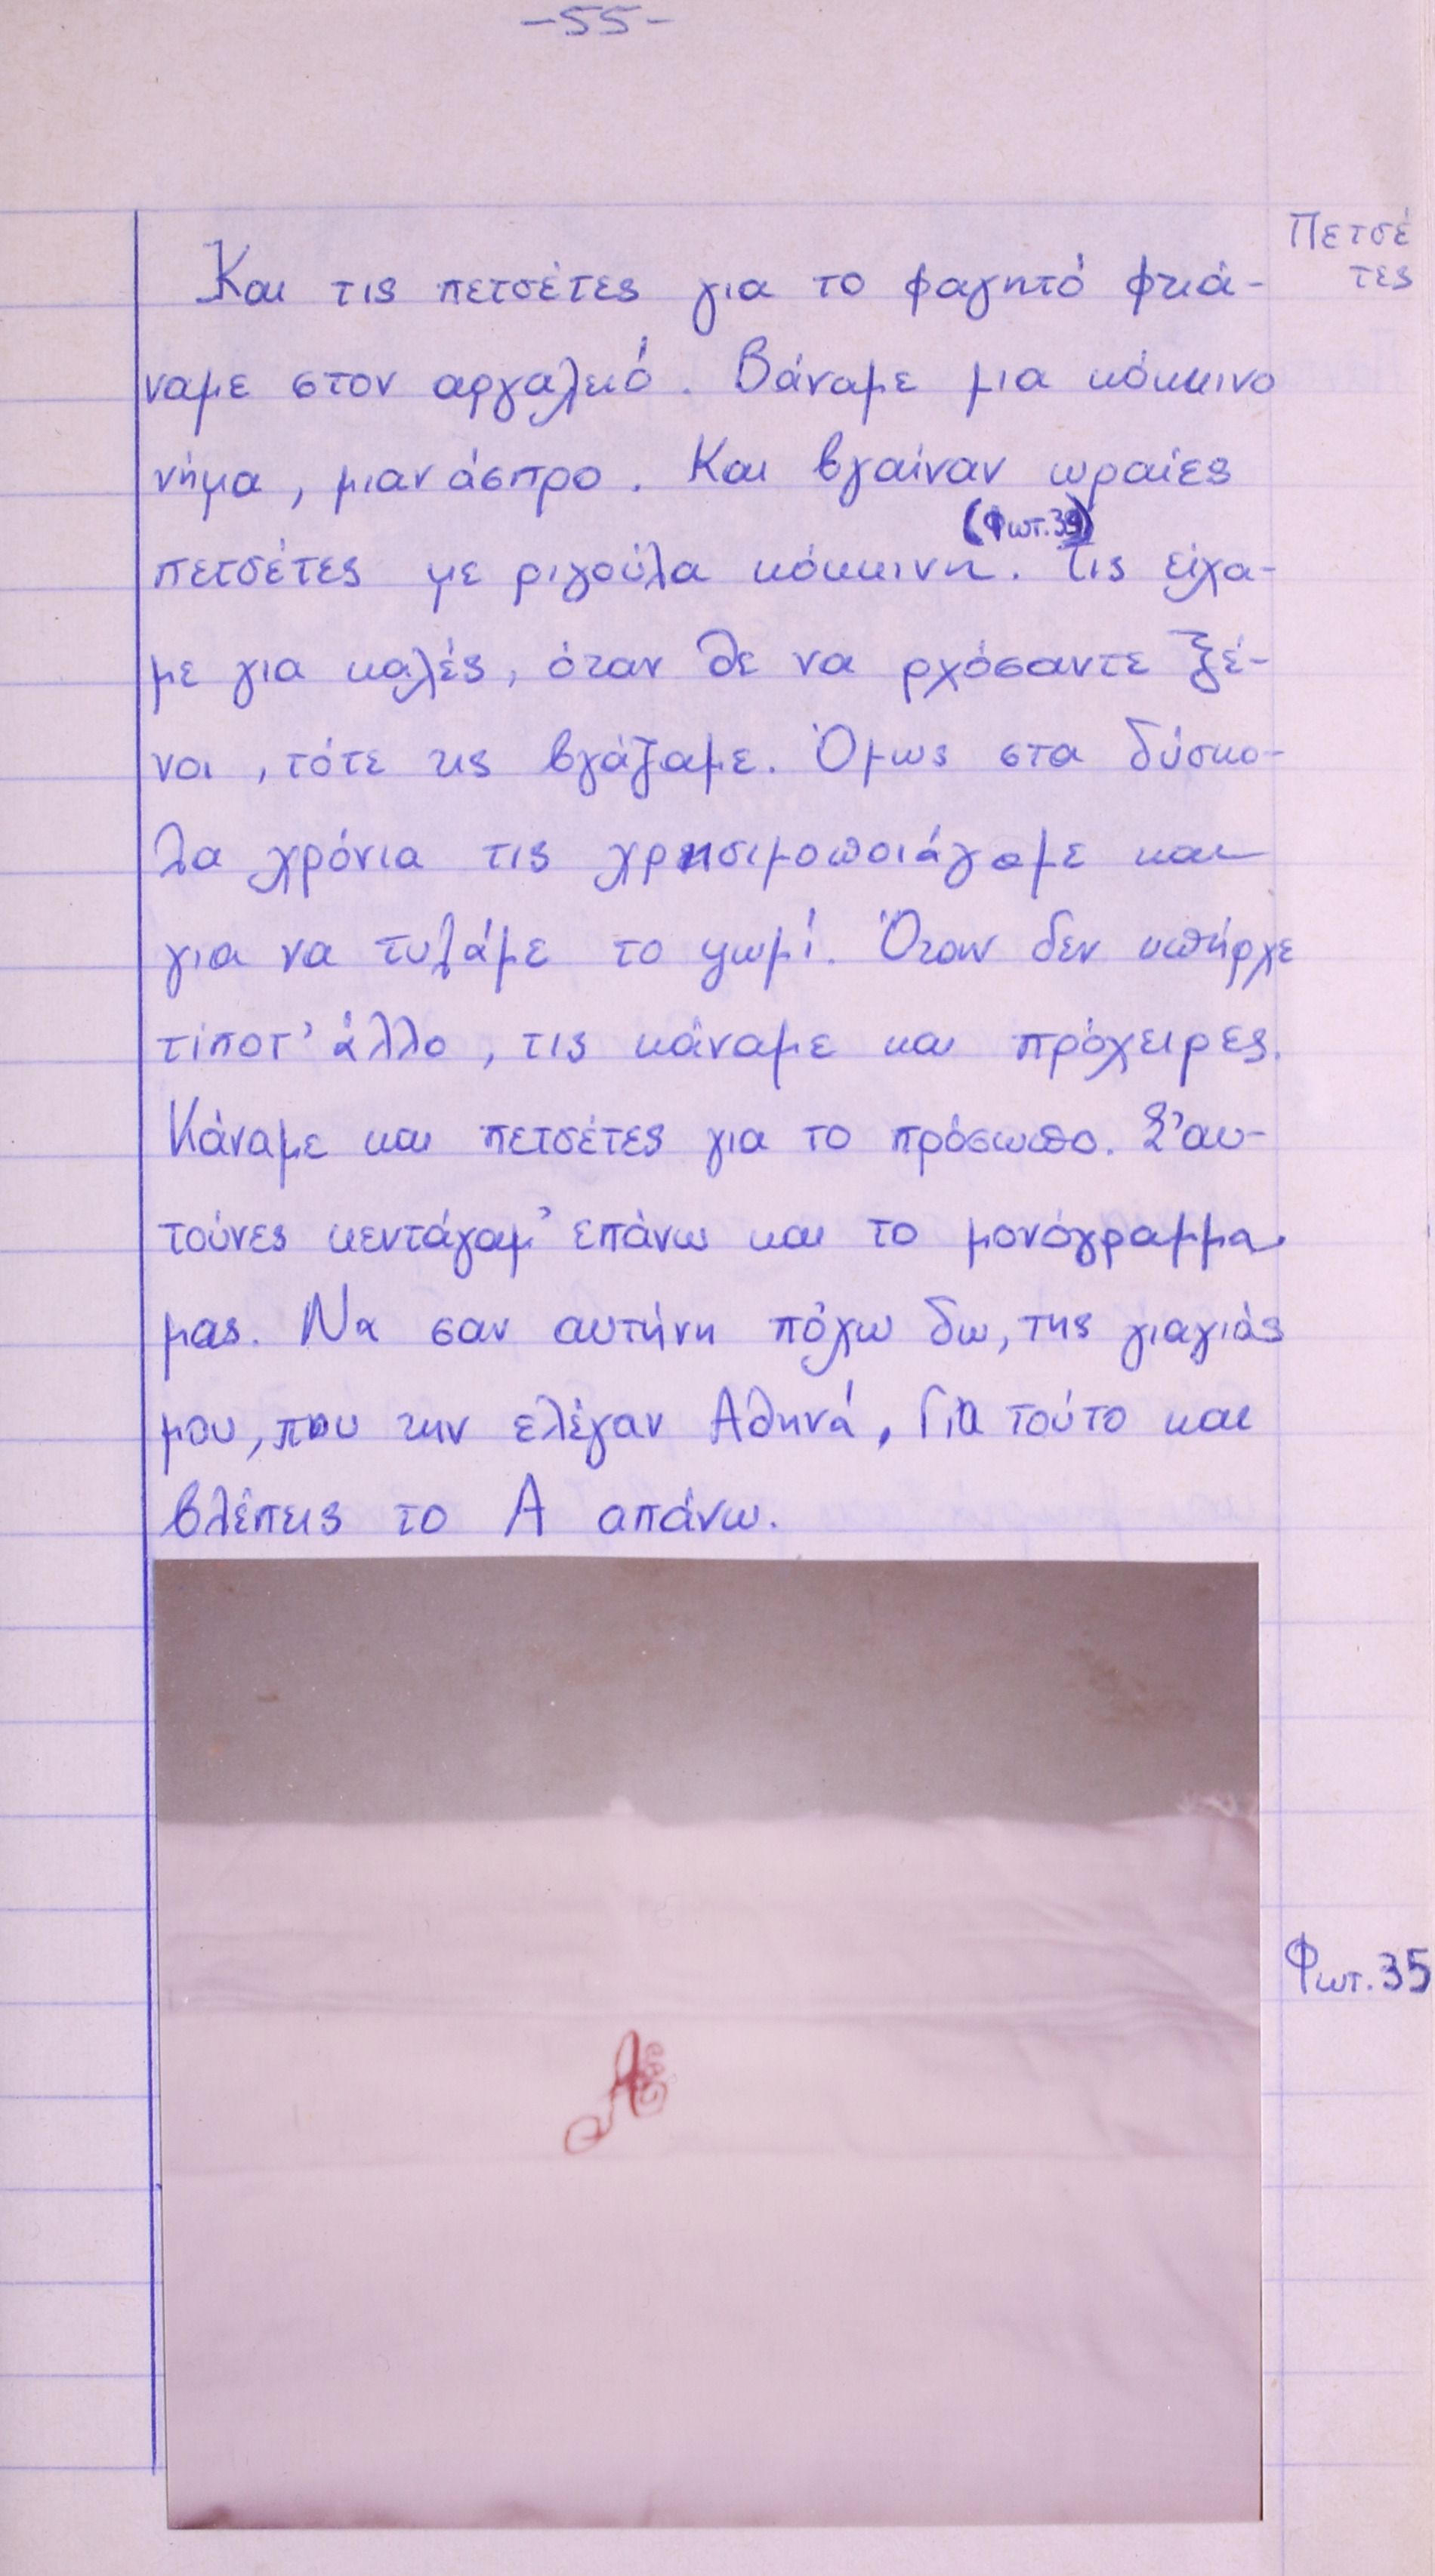 -55-
Πετσέ
τες
Και τις πετσέτες για το φαγητό φτιά-
ναμε στον αργαλειό. Βάναμε μια κόκκινο
νήμα, μιαν άσπρο. Και βγαίναν ωραίες
(Φωτ.39)
πετσέτες με ριγούλα κόκκινη. Τις είχα-
με για καλές, όταν θε να ρχόσαντε ξέ-
νοι, τότε τις βγάζαμε. Όμως στα δύσκο-
λα χρόνια τις χρησιμοποιάγαμε και
για να τυλάμε το ψωμί. Όταν δεν υπήρχε
τίποτ' άλλο, τις κάναμε και πρόχειρες.
Κάναμε και πετσέτες για το πρόσωπο. Σ'αυ-
τούνες κεντάγαμ' επάνω και το μονόγραμμα
μας. Να σαν αυτήνη πόχω δω, της γιαγιάς
μου, που την ελέγαν Αθηνά. Για τούτο και
βλέπεις το Α απάνω.
Α
Φωτ.35